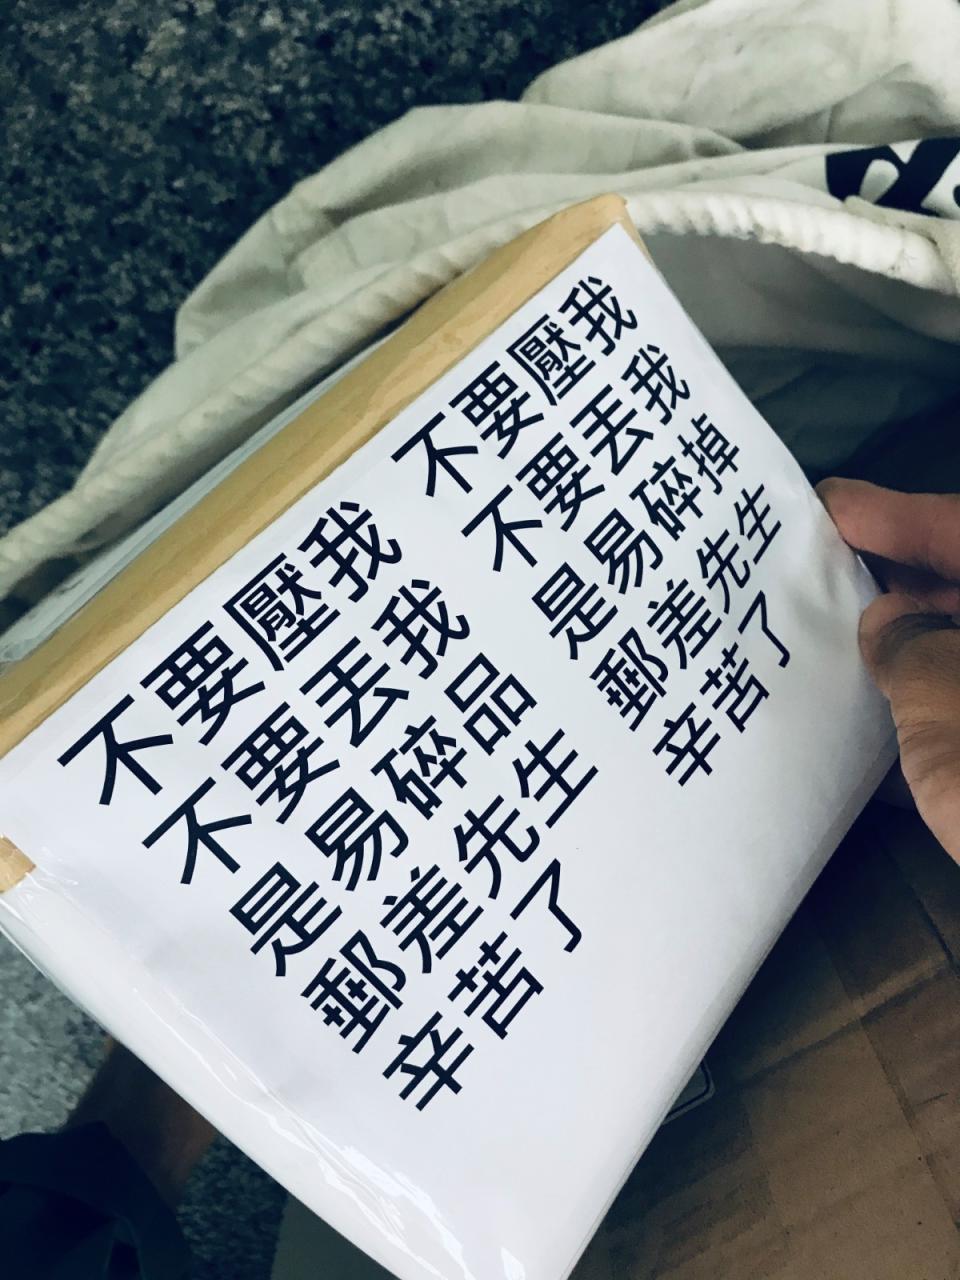 不要壓我
不要丟我
是易碎品
郵差先生
辛苦了
不要壓我
不要丟我
是易碎掉
郵差先生
辛苦了